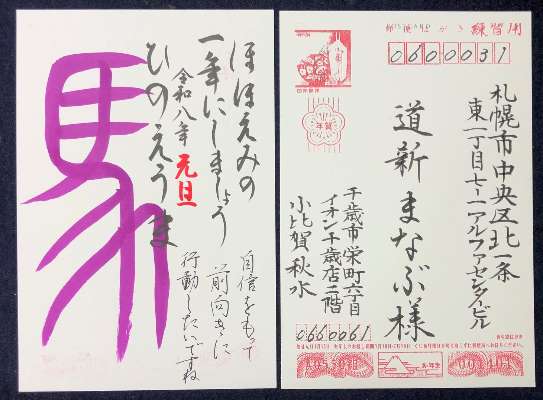 馬
ほほえみの
一年にしましょう
令和八年 元旦
ひのえうま
自信をもって
前向きに
行動したいですね
郵便はがき 練習用
0600031
札幌市中央区北一条
東一丁目七-一アルファセンタービル
道新まなぶ様
年賀
千歳市栄町六丁目
イオン千歳店二階
小比賀秋水
0660061